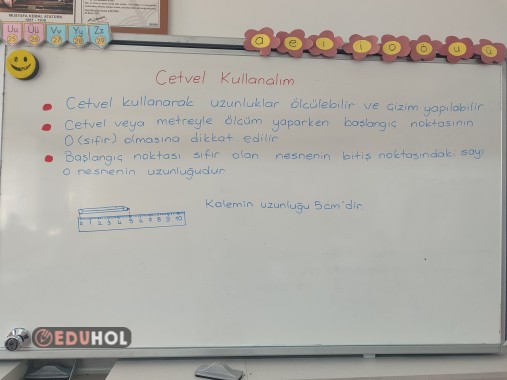 MUSTAFA KEMAL ATATÜRK
Uu Üü Vv Yy Zz
25 26 27 28 29
a e ı i o ö u ü
Cetvel Kullanalım
Cetvel kullanarak uzunluklar ölçülebilir ve çizim yapılabilir
Cetvel veya metreyle ölçüm yaparken başlangıç noktasının
0 (sıfır) olmasına dikkat edilir
Başlangıç noktası sıfır olan nesnenin bitiş noktasındaki sayı
o nesnenin uzunluğudur
Kalemin uzunluğu 5cm'dir
0 1 2 3 4 5 6 7 8 9 10
EDUHOL